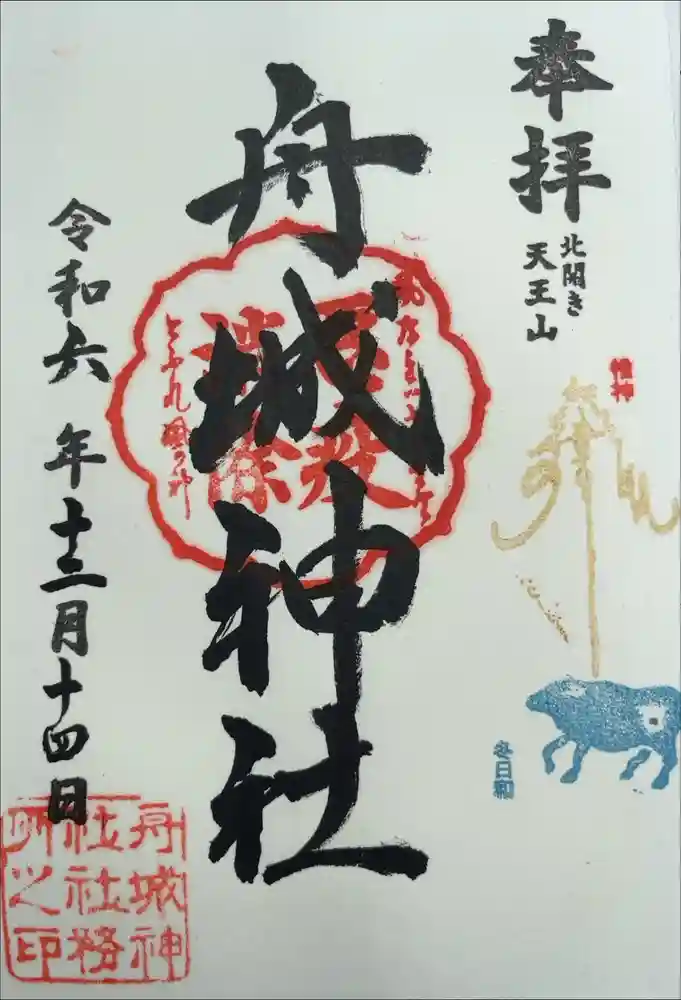 奉拝
北開き
天王山
舟城神社
令和六年十二月十四日
冬日和
舟城神
社社務
所之印